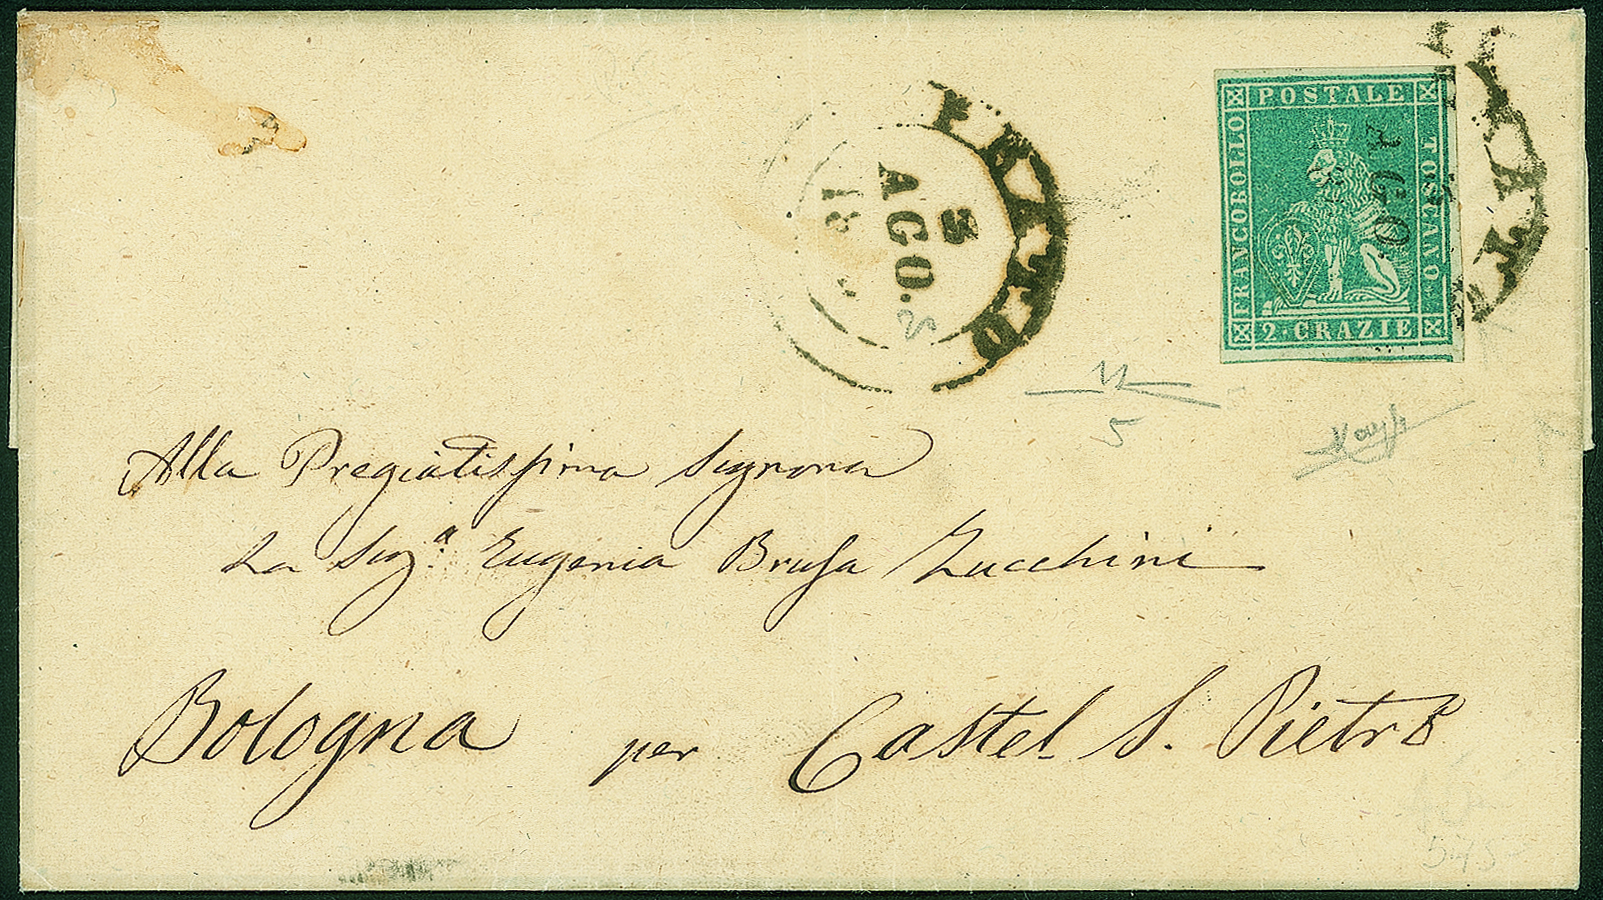 PRATO
3
AGO.
18
POSTALE
FRANCOBOLLO
TOSCANO
2·CRAZIE
AGO.
PRATO
5
Alla Pregiatissima Signora
La Sig.ª Eugenia Brusa Zucchini
Bologna per Castel S. Pietro